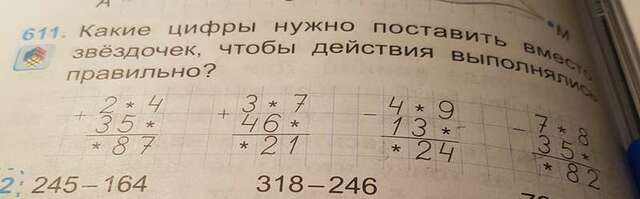 М
611. Какие цифры нужно поставить вместо
звёздочек, чтобы действия выполнялись
правильно?
+ 2*4 + 3*7 - 4*9 - 7*8
35* 46* 13* 35*
*87 *21 *24 *82
2. 245−164 318−246